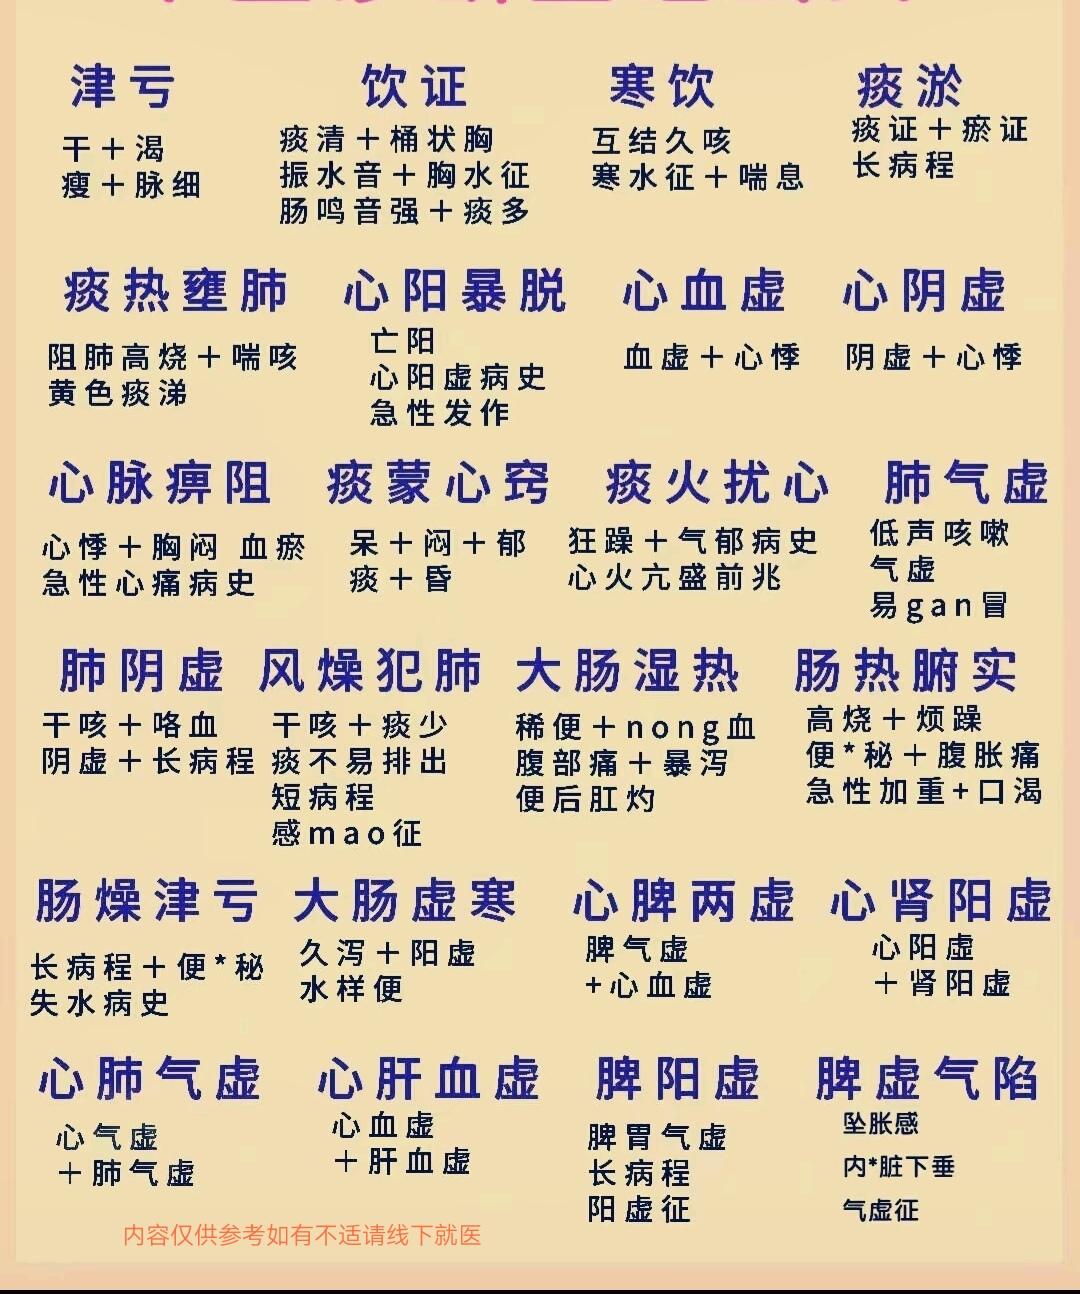 津亏
干+渴
瘦+脉细
饮证
痰清+桶状胸
振水音+胸水征
肠鸣音强+痰多
寒饮
互结久咳
寒水征+喘息
痰淤
痰证+瘀证
长病程
痰热壅肺
阻肺高烧+喘咳
黄色痰涕
心阳暴脱
亡阳
心阳虚病史
急性发作
心血虚
血虚+心悸
心阴虚
阴虚+心悸
心脉痹阻
心悸+胸闷 血瘀
急性心痛病史
痰蒙心窍
呆+闷+郁
痰+昏
痰火扰心
狂躁+气郁病史
心火亢盛前兆
肺气虚
低声咳嗽
气虚
易gan冒
肺阴虚
干咳+咯血
阴虚+长病程
风燥犯肺
干咳+痰少
痰不易排出
短病程
感mao征
大肠湿热
稀便+nong血
腹部痛+暴泻
便后肛灼
肠热腑实
高烧+烦躁
便*秘+腹胀痛
急性加重+口渴
肠燥津亏
长病程+便*秘
失水病史
大肠虚寒
久泻+阳虚
水样便
心脾两虚
脾气虚
+心血虚
心肾阳虚
心阳虚
+肾阳虚
心肺气虚
心气虚
+肺气虚
心肝血虚
心血虚
+肝血虚
脾阳虚
脾胃气虚
长病程
阳虚征
脾虚气陷
坠胀感
内*脏下垂
气虚征
内容仅供参考如有不适请线下就医